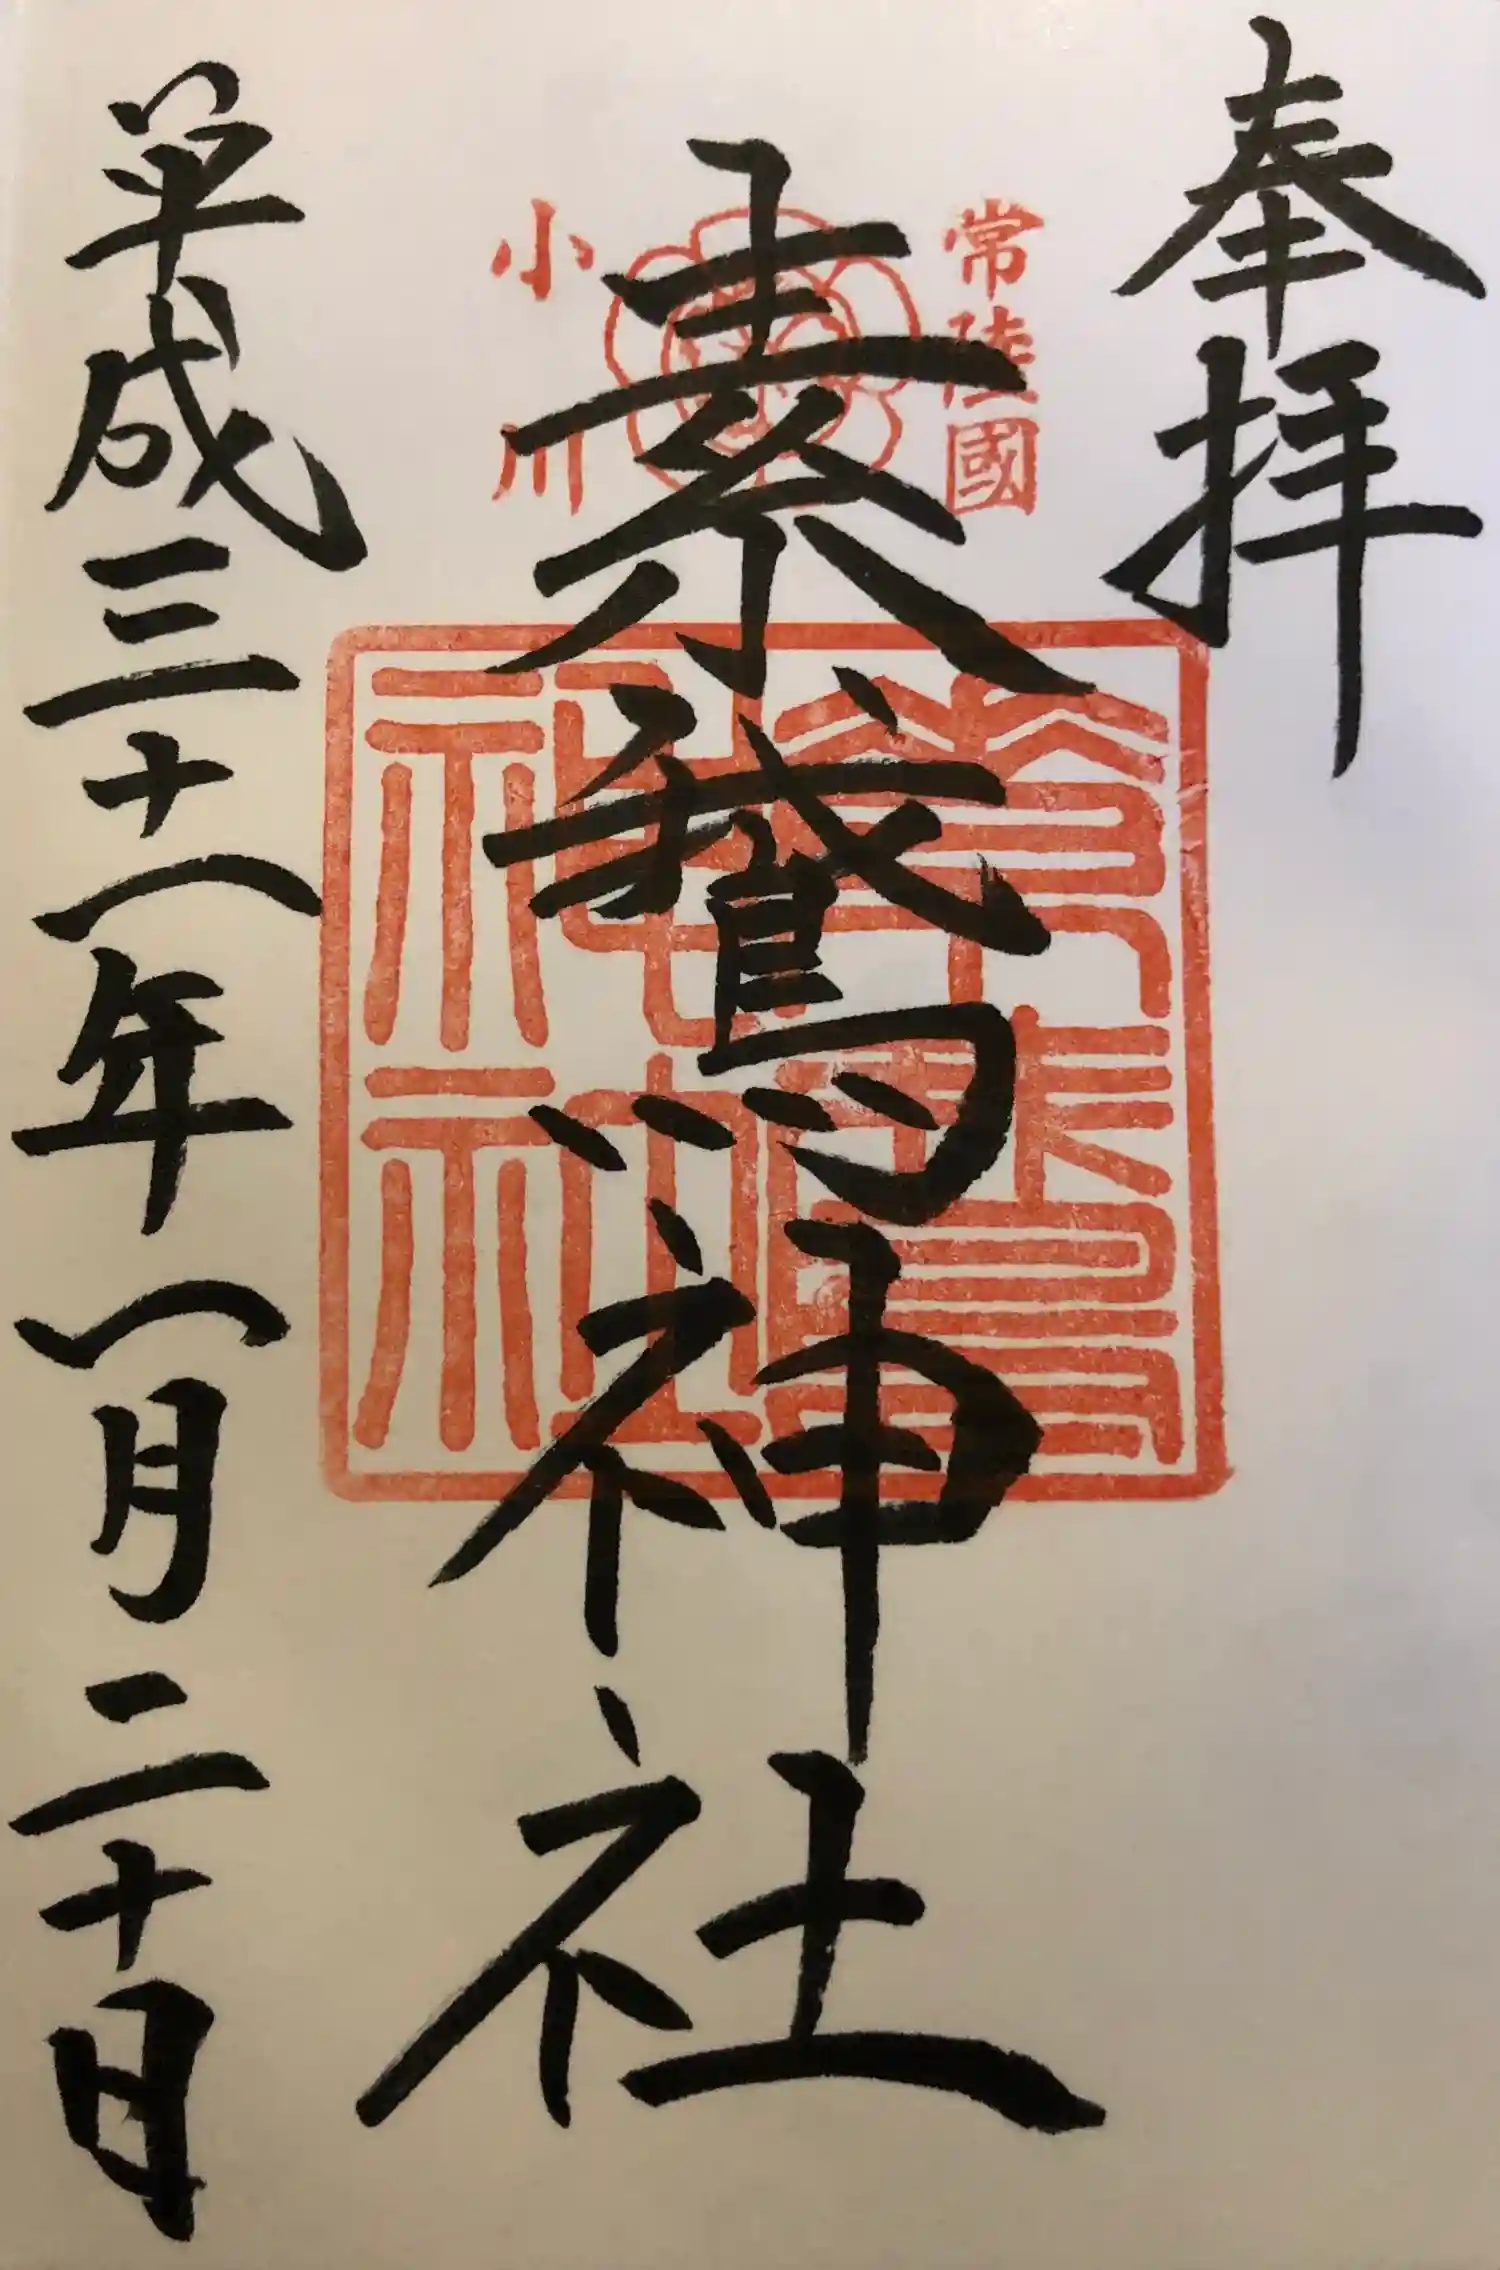 奉拝
常陸國
小川
素鵞神社
神社
平成三十一年一月二十日